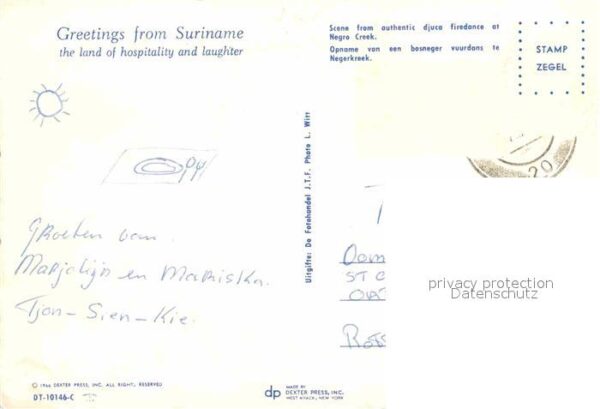 Greetings from Suriname
the land of hospitality and laughter
Scene from authentic djuca firedance at
Negro Creek.
Opname van een bosneger vuurdans te
Negerkreek.
STAMP
ZEGEL
20
Uitgifte: De Fotohandel J.T.F. Photo L. Wirr
GRoeten van
Marjolijn en MaRiska.
Tjon-Sien-Kie.
Oom
ST C
privacy protection
Datenschutz
© 1966 DEXTER PRESS, INC. ALL RIGHT, RESERVED
DT-10146-C
dp MADE BY
DEXTER PRESS, INC.
WEST NYACK, NEW YORK